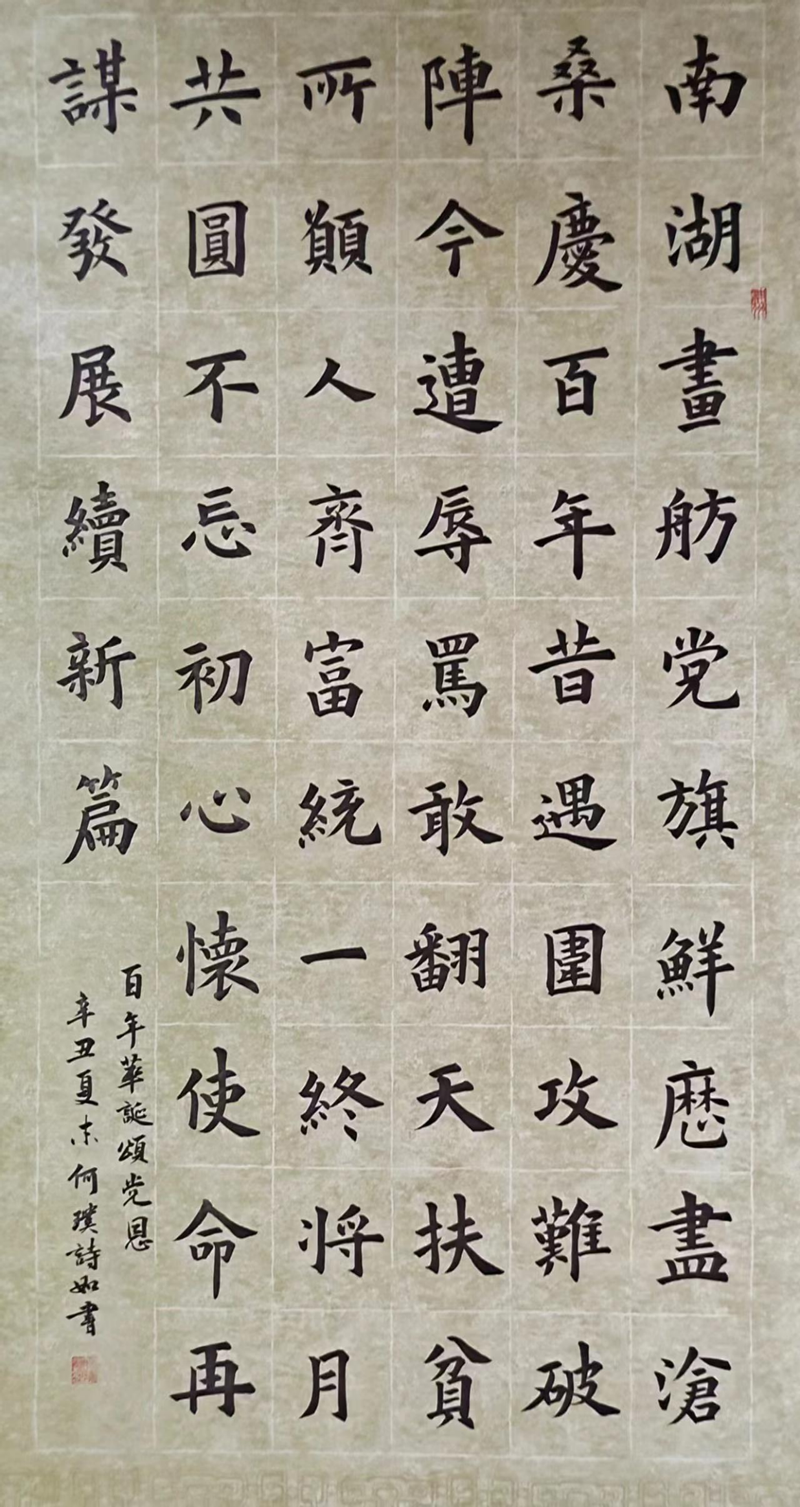 南湖畫舫党旗鮮歷盡滄
桑慶百年昔遇圍攻難破
陣今遭辱罵敢翻天扶貧
所願人齊富統一終將月
共圓不忘初心懷使命再
謀發展續新篇
百年華誕頌党恩
辛丑夏末何璞詩如書